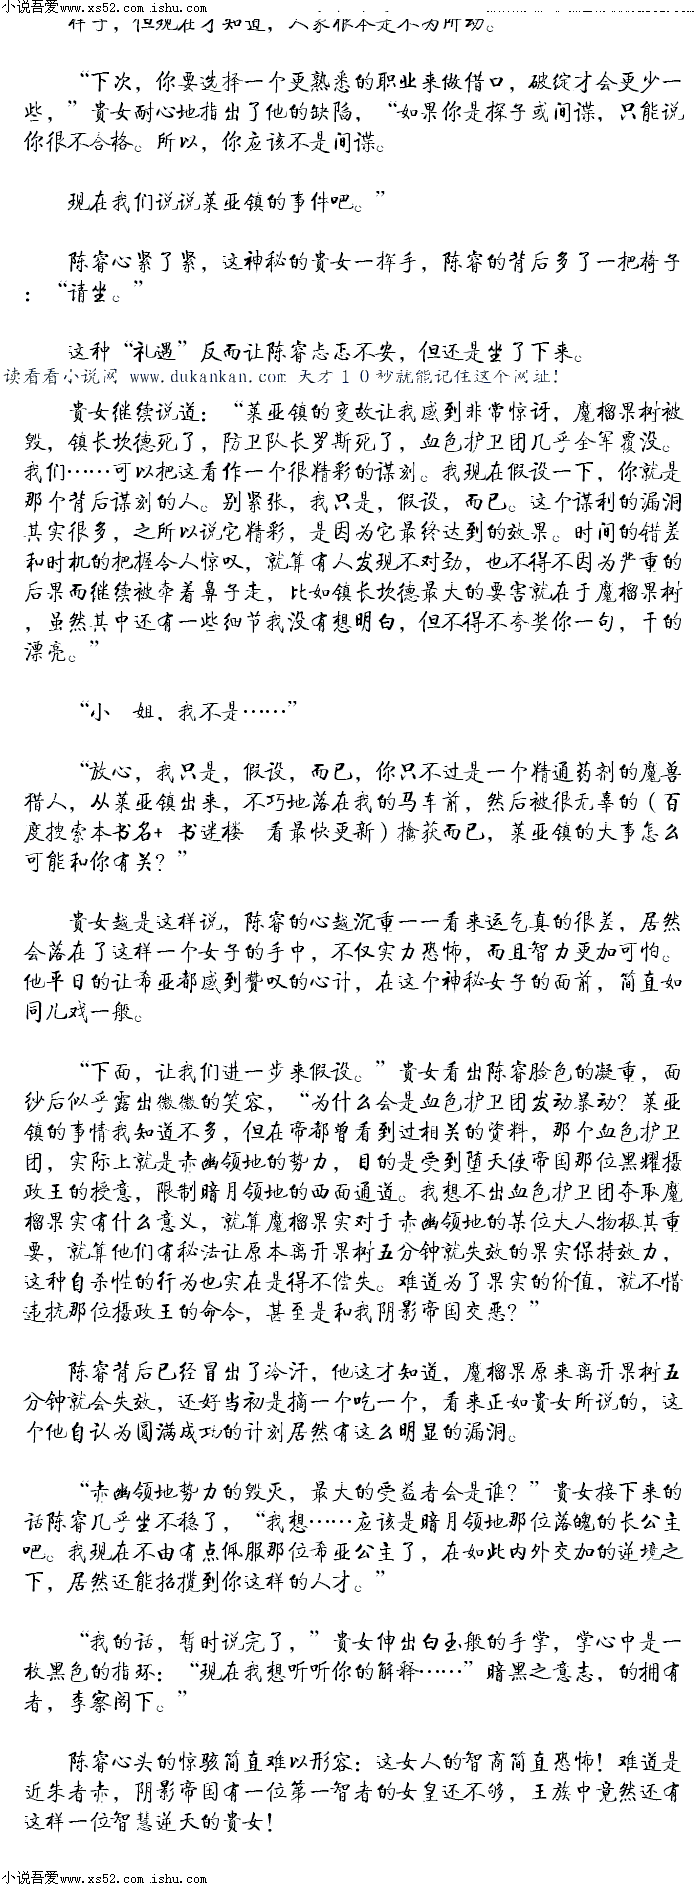 小说吾爱 www.xs52.com ishu.com
样子，但现在才知道，人家根本是不为所动。
“下次，你要选择一个更熟悉的职业来做借口，破绽才会更少一
些，”貴女耐心地指出了他的缺陷，“如果你是探子或间谍，只能说
你很不合格。所以，你应该不是间谍。
现在我们说说莱亚镇的事件吧。”
陈睿心紧了紧，这神秘的貴女一挥手，陈睿的背后多了一把椅子
：“请坐。”
这种“礼遇”反而让陈睿忐忑不安，但还是坐了下来。
读看看小说网 www.dukankan.com 天才１０秒就能记住这个网址！
貴女继续说道：“莱亚镇的变故让我感到非常惊讶，魔榴果树被
毁，镇长坎德死了，防卫队长罗斯死了，血色护卫团几乎全军覆没。
我们……可以把这看作一个很精彩的谋刻。我现在假设一下，你就是
那个背后谋刻的人。别紧张，我只是，假设，而已。这个谋利的漏洞
其实很多，之所以说它精彩，是因为它最终达到的效果。时间的错差
和时机的把握令人惊叹，就算有人发现不对劲，也不得不因为严重的
后果而继续被牵着鼻子走，比如镇长坎德最大的要害就在于魔榴果树
，虽然其中还有一些细节我没有想明白，但不得不夸奖你一句，干的
漂亮。”
“小　姐，我不是……”
“放心，我只是，假设，而已，你只不过是一个精通药剂的魔兽
猎人，从莱亚镇出来，不巧地落在我的马车前，然后被很无辜的（百
度搜索本书名+ 书迷楼　看最快更新）擒获而已，莱亚镇的大事怎么
可能和你有关？”
貴女越是这样说，陈睿的心越沉重一一看来运气真的很差，居然
会落在了这样一个女子的手中，不仅实力恐怖，而且智力更加可怕。
他平日的让希亚都感到赞叹的心计，在这个神秘女子的面前，简直如
同儿戏一般。
“下面，让我们进一步来假设。”貴女看出陈睿脸色的凝重，面
纱后似乎露出微微的笑容，“为什么会是血色护卫团发动暴动？莱亚
镇的事情我知道不多，但在帝都曾看到过相关的资料，那个血色护卫
团，实际上就是赤幽领地的势力，目的是受到堕天使帝国那位黑耀摄
政王的授意，限制暗月领地的西面通道。我想不出血色护卫团夺取魔
榴果实有什么意义，就算魔榴果实对于赤幽领地的某位大人物极其重
要，就算他们有秘法让原本离开果树五分钟就失效的果实保持效力，
这种自杀性的行为也实在是得不偿失。难道为了果实的价值，就不惜
违抗那位摄政王的命令，甚至是和我阴影帝国交恶？”
陈睿背后已经冒出了冷汗，他这才知道，魔榴果原来离开果树五
分钟就会失效，还好当初是摘一个吃一个，看来正如貴女所说的，这
个他自认为圆满成功的计刻居然有这么明显的漏洞。
“赤幽领地势力的毁灭，最大的受益者会是谁？”貴女接下来的
话陈睿几乎坐不稳了，“我想……应该是暗月领地那位落魄的长公主
吧。我现在不由有点佩服那位希亚公主了，在如此内外交加的逆境之
下，居然还能招揽到你这样的人才。”
“我的话，暂时说完了，”貴女伸出白玉般的手掌，掌心中是一
枚黑色的指环：“现在我想听听你的解释……”暗黑之意志，的拥有
者，李察阁下。”
陈睿心头的惊骇简直难以形容：这女人的智商简直恐怖！难道是
近朱者赤，阴影帝国有一位第一智者的女皇还不够，王族中竟然还有
这样一位智慧逆天的貴女！
小说吾爱 www.xs52.com ishu.com